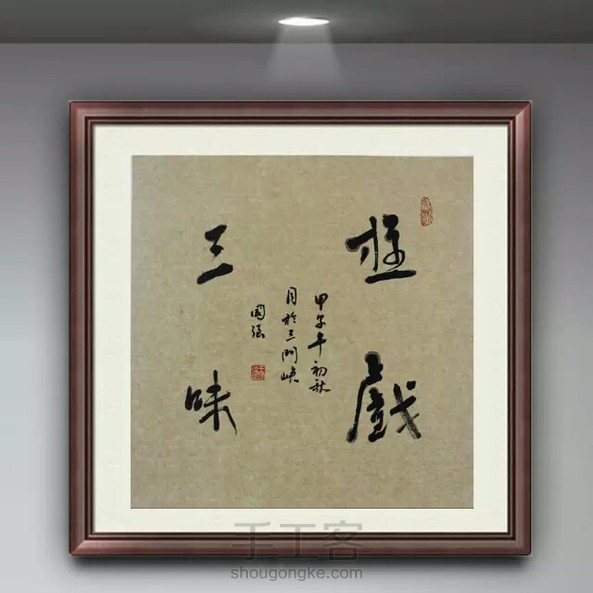 遊戲
三昧
甲午年初秋
月於三門峽
國强
手工客
shougongke.com